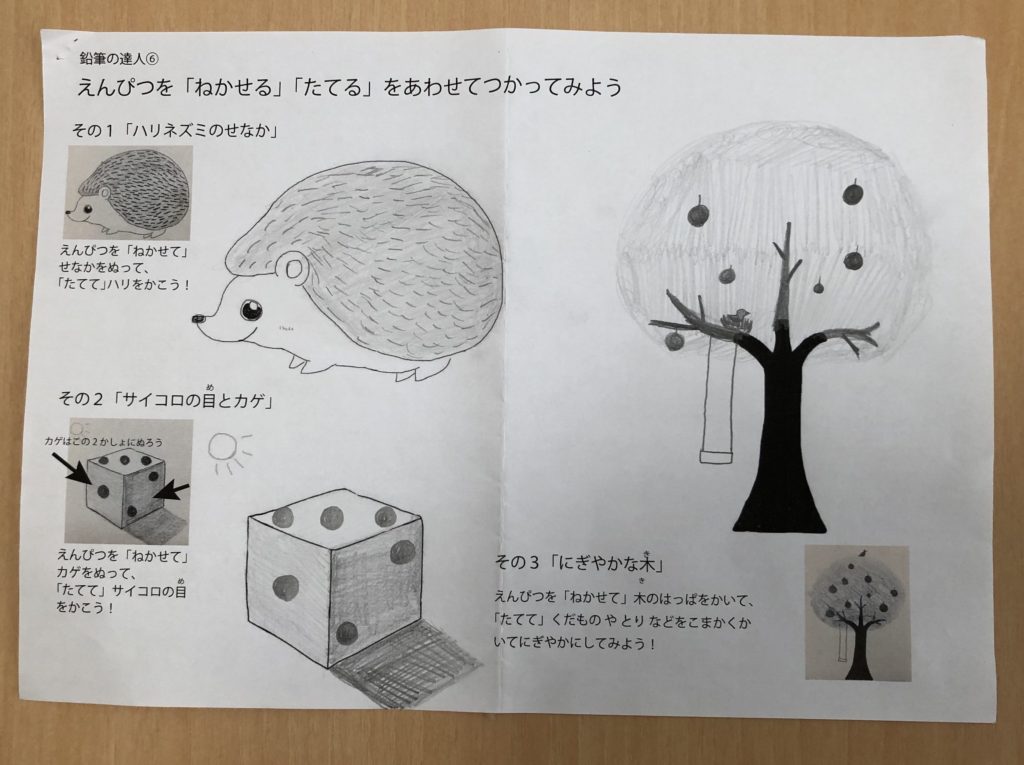 鉛筆の達人⑥
えんぴつを「ねかせる」「たてる」をあわせてつかってみよう
その1「ハリネズミのせなか」
えんぴつを「ねかせて」
せなかをぬって、
「たてて」ハリをかこう！
その2「サイコロの目とカゲ」
め
カゲはこの2かしょにぬろう
えんぴつを「ねかせて」
カゲをぬって、
「たてて」サイコロの目
め
をかこう！
その3「にぎやかな木」
き
えんぴつを「ねかせて」木のはっぱをかいて、
き
「たてて」くだもの や とり などをこまかくか
いてにぎやかにしてみよう！